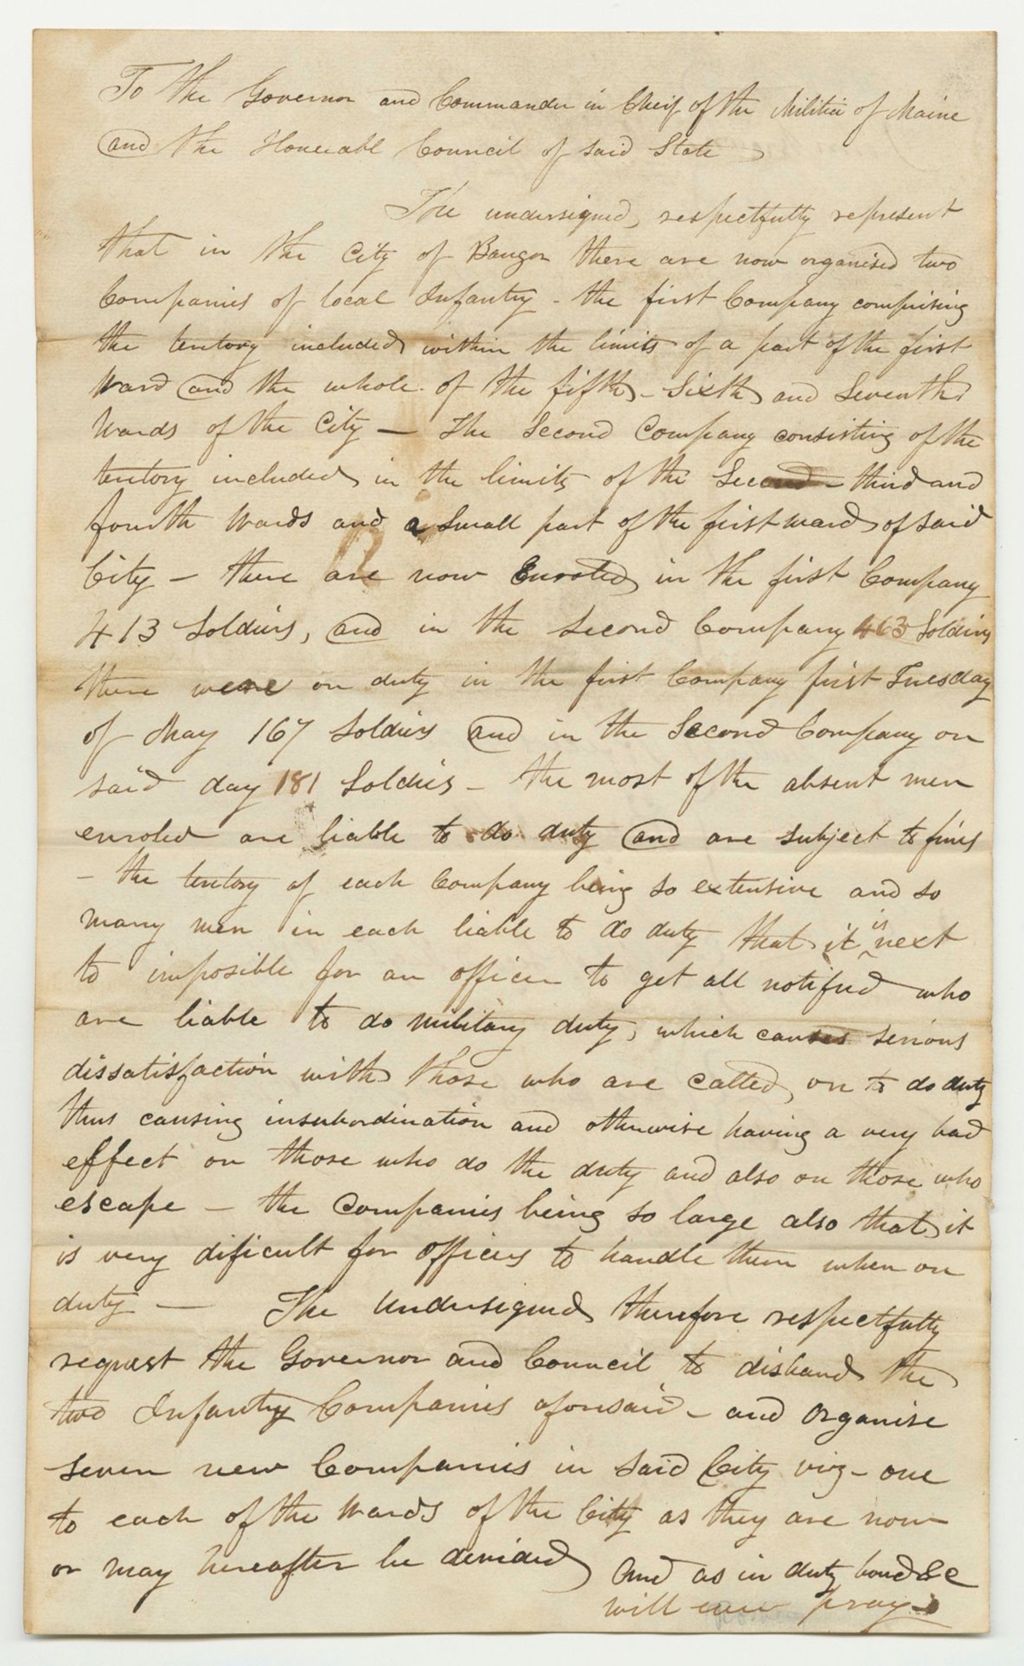 To the Governor and Commander in Cheif of the Militia of Maine
and the Honerabl Council of said State
The undersigned, respectfully represent
that in the City of Bangor there are now organised two
Companies of local Infantry - the first Company comprising
the teritory included within the limits of a part of the first
Ward and the whole of the fifth - Sixth and Seventh
Wards of the City — The Second Company consisting of the
teritory included in the limits of the Second - third and
fourth Wards and a Small part of the first ward of said
City - there are now Enroled in the first Company
413 Soldiers, and in the Second Company 463 Soldiers
there were on duty in the first Company first Tuesday
of May 167 Soldiers and in the Second Company on
said day 181 Soldiers - the most of the absent men
enroled are liable to do duty and are subject to fines
- the teritory of each Company being so extensive and so
many men in each liable to do duty that it is next
to imposible for an officer to get all notified who
are liable to do military duty, which causes serious
dissatisfaction with those who are called on to do duty
thus causing insubordination and otherwise having a very bad
effect on those who do the duty and also on those who
escape - the Companies being so large also that it
is very dificult for officers to handle them when on
duty — The Undersigned therefore respectfully
request the Governor and Council to disband the
two Infantry Companies aforesaid - and Organise
seven new Companies in said City viz - one
to each of the Wards of the City as they are now
or may hereafter be devided And as in duty bound &c
will ever pray